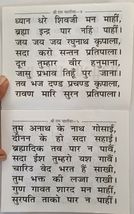 ध्यान धरे शिवजी मन माहीं,
ब्रह्मा इन्द्र पार नहिं पाहीं।
जय जय जय रघुनाथ कृपाला,
सदा करो सन्तन प्रतिपाला।
दूत तुम्हार वीर हनुमाना,
जासु प्रभाव तिहूँ पुर जाना।
तव भुज दण्ड प्रचण्ड कृपाला,
रावण मारि सुरन प्रतिपाला।
तुम अनाथ के नाथ गोसाईं,
दीनन के हो सदा सहाई।
ब्रह्मादिक तव पार न पावैं,
सदा ईश तुम्हरो यश गावैं।
चारिउ वेद भरत हैं साखी,
तुम भक्तन की लज्जा राखी।
गुण गावत शारद मन माहीं,
सुरपति ताको पार न पाहीं।